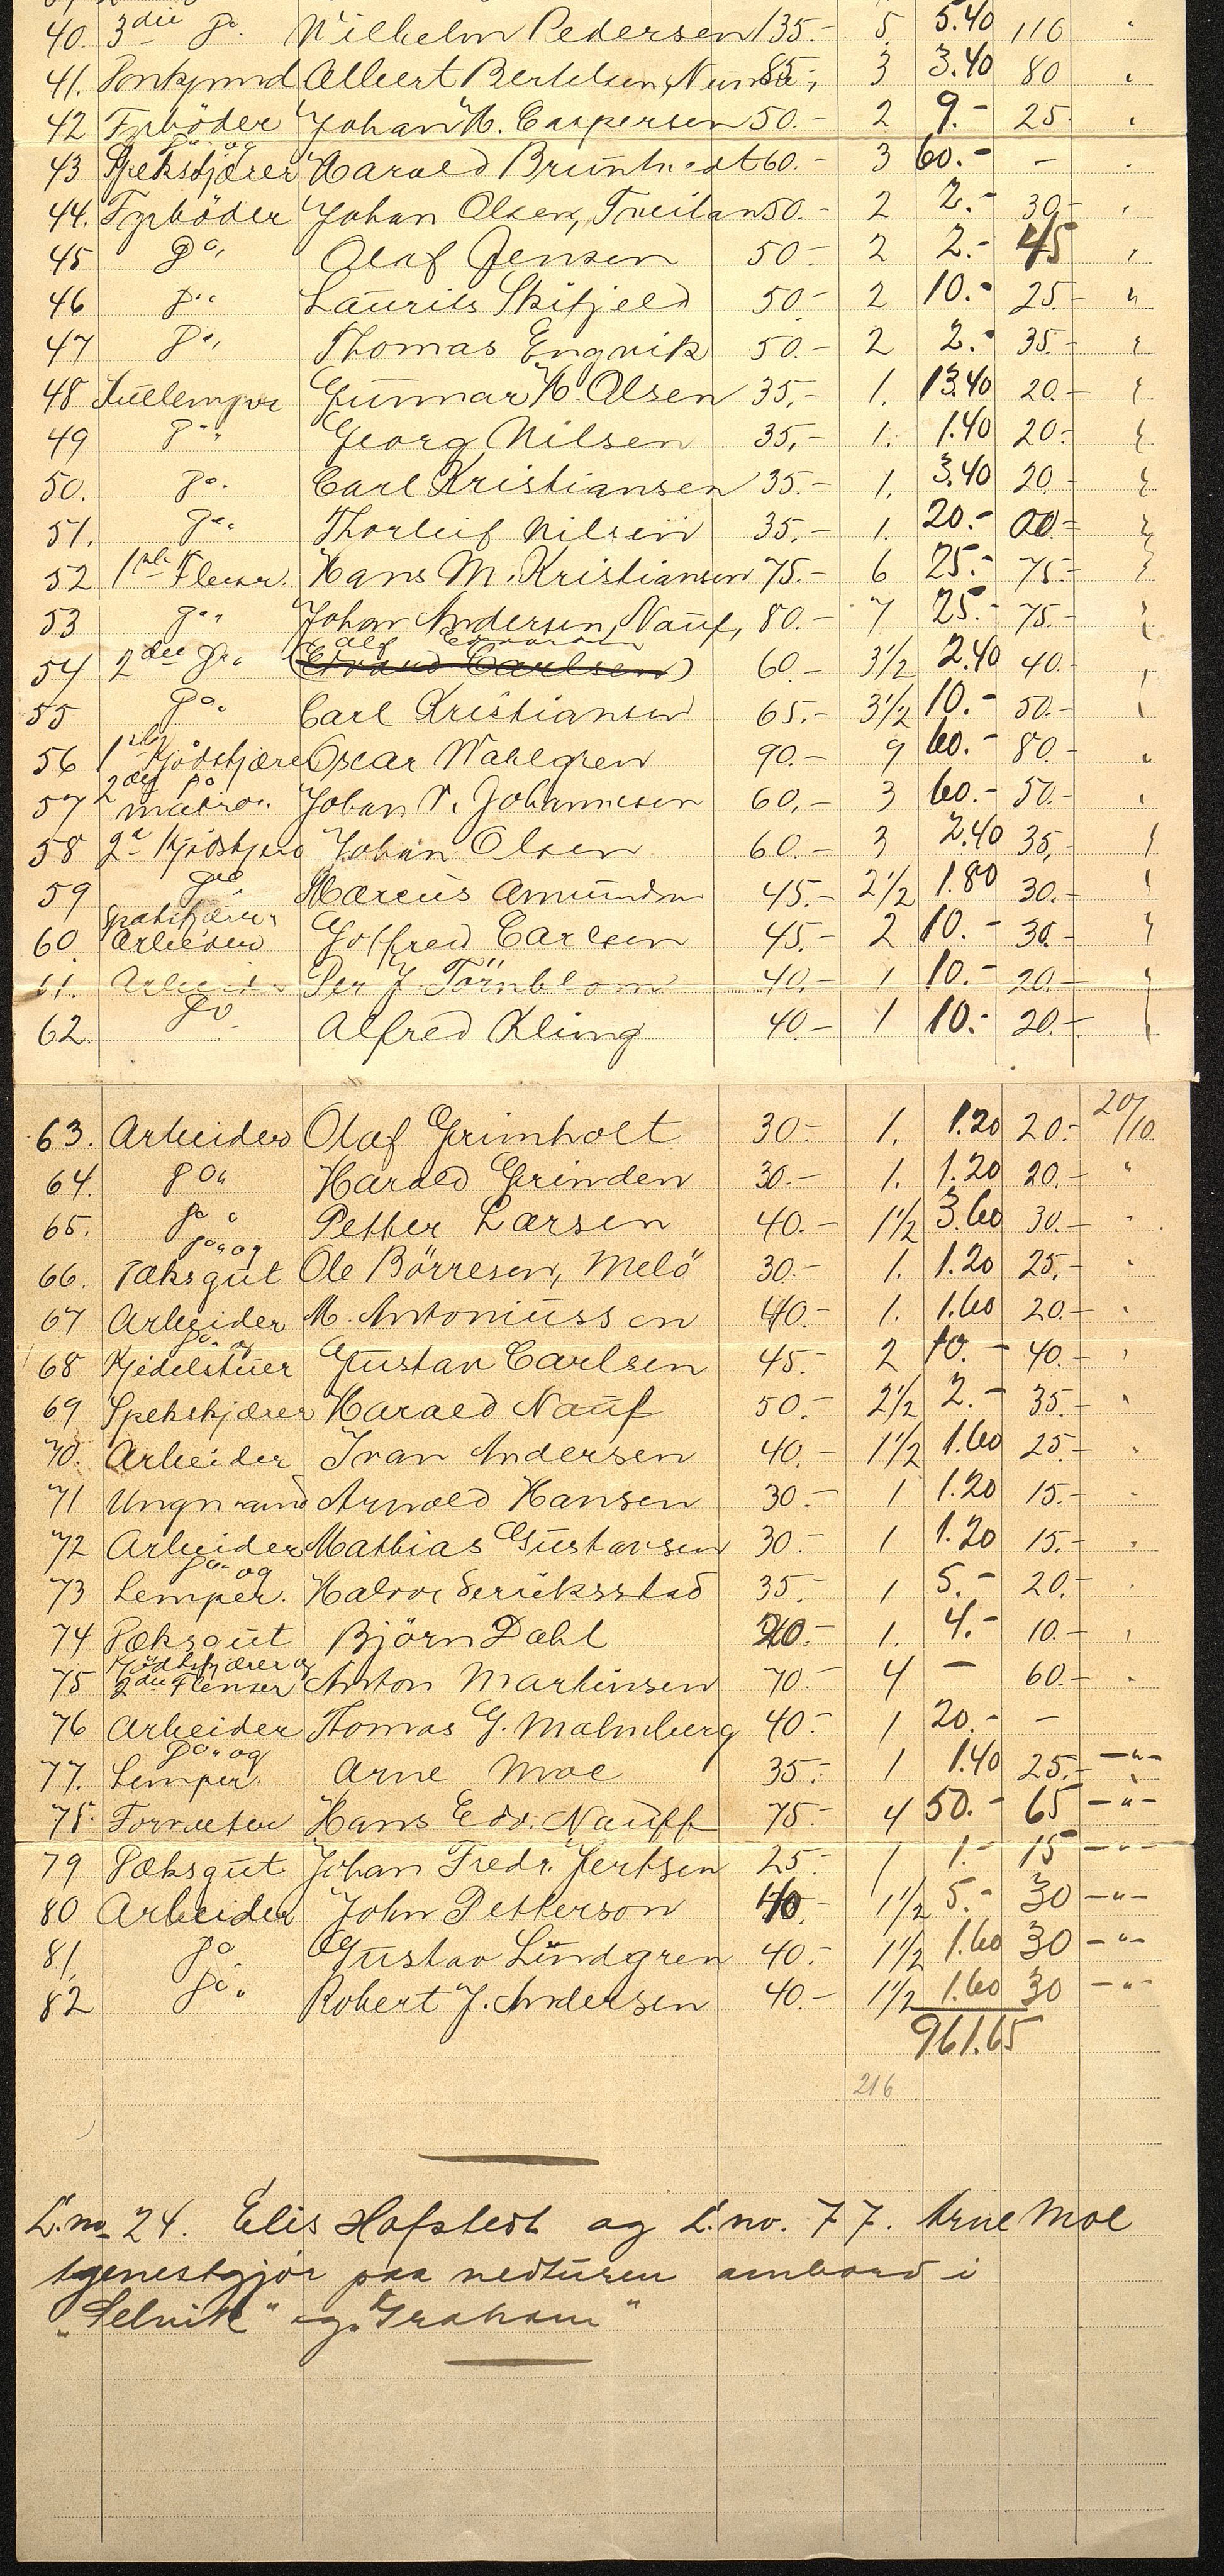 40. 3die Do. Wilhelm Pedersen 135.- 5 5.40 110 "
41. Donkymnd Albert Bertelsen, 85.- 3 3.40 80 "
42 Fyrböder Johan H. Caspersen 50.- 2 9.- 25 "
Do. og
43 Spekskjærer Harald 60.- 3 60.- - "
44. Fyrböder Johan Olsen, 50.- 2 2.- 30.- "
45 Do. Olaf Jensen 50.- 2 2.- 45 "
46 Do. Laurits Skifjeld 50.- 2 10.- 25.- "
47 Do. Thomas Engvik 50.- 2 2.- 35.- "
48 Kullemper Gunnar H. Olsen 35.- 1. 13.40 20.- "
49 Do. Georg Nilsen 35.- 1. 1.40 20.- "
50. Do. Carl Kristiansen 35.- 1. 3.40 20 "
51. Do. Thorleif Nilsen 35.- 1. 20.- 00.- "
52 1ste Flenser. Hans M. Kristiansen 75.- 6 25.- 75.- "
53 Do. Johan Andersen, Nauf, 80.- 7 25.- 75.- "
54 2den Do. (Edvard Carlsen) 60.- 3½ 2.40 40.- "
55 Do. Carl Kristiansen 65.- 3½ 10.- 50.- "
56 1ste Kjödskjærer Oscar Wahlgren 90.- 9 60.- 80.- "
2den Do
57 matros. Johan A. Johannesen 60.- 3 60.- 50.- "
58 2den Kjödskjære Johan Olsen 60.- 3 2.40 35.- "
59 Do. Marcus Amundsen 45.- 2½ 1.80 30.- "
Spækskjærer
60. Arbeider Gotfred Carlsen 45.- 2 10.- 30.- "
61. Arbeider Per J. Törnblom 40.- 1 10.- 20.- "
62. Do. Alfred Kling 40.- 1 10.- 20.- "
63. Arbeider Olaf Grimholt 30.- 1. 1.20 20.- 20/10
64. Do. Harald Grinden 30.- 1. 1.20 20.- "
65. Do. Petter Larsen 40.- 1½ 3.60 30.- "
Do. og
66. Dæksgut Ole Börresen, Melö 30.- 1. 1.20 25.- "
67 Arbeider M. Antoniussen 40.- 1. 1.60 20.- "
Do. og
68 Kjedelstuer Gustav Carlsen 45.- 2 10.- 40.- "
69 Spekskjærer Harald Nauf 50.- 2½ 2.- 35.- "
70. Arbeider Ivan Andersen 40.- 1½ 1.60 25.- "
71 Ungmand Arnold Hansen 30.- 1 1.20 15.- "
72 Arbeider Mathias Gustavsen 30.- 1 1.20 15.- "
Do. og
73 Lemper. Halvor 35.- 1 5.- 20.- "
74 Dæksgut Björn Dahl 20.- 1. 4.- 10.- "
Kjödskjærer og
75 2den Flenser Anton Martinsen 70.- 4 - 60.- "
76 Arbeider Thomas G. Malmberg 40.- 1 20.- -
Do. og
77. Lemper. Arne Moe 35.- 1 1.40 25.- -"-
78. Forvalter Hans Edv. Nauff 75.- 4 50.- 65 -"-
79 Dæksgut Johan Fredr. Jertsen 25.- 1 1.- 15 -"-
80 Arbeider John Petterson 40.- 1½ 5.- 30 -"-
81. Do. Gustav Lindgren 40.- 1½ 1.60 30 -"-
82 Do. Robert J. Andersen 40.- 1½ 1.60 30 -"-
961.65
216
L.no 24. Elis Hofstedt og L.no. 77. Arne Moe
tjenestgjör paa nedturen ombord i
"Selvik" og "Graham"